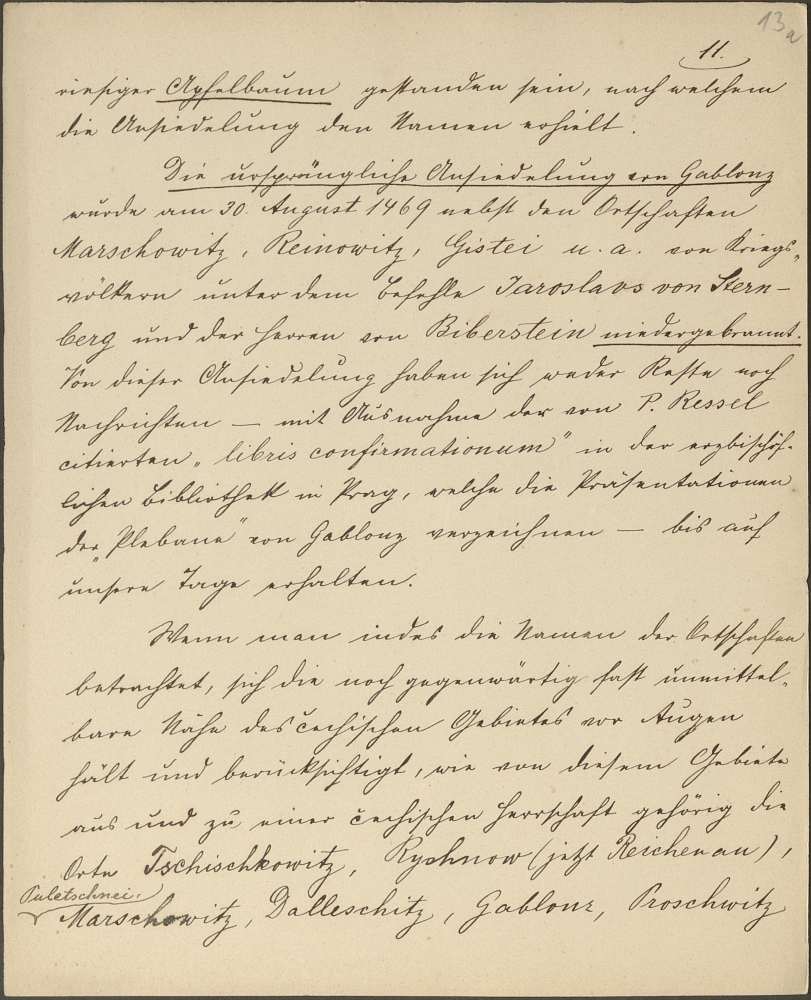 13a
11.
riesiger Apfelbaum gestanden sein, nach welchem
die Ansiedelung den Namen erhielt.
Die ursprüngliche Ansiedelung von Gablonz
wurde am 30. August 1469 nebst den Ortschaften
Marschowitz, Reinowitz, Gistei u. a. von Kriegs-
völkern unter dem Befehle Jaroslavs von Stern-
berg und der Herren von Biberstein niedergebrannt.
Von dieser Ansiedelung haben sich weder Reste noch
Nachrichten — mit Ausnahme der von P. Ressel
citierten „libris confirmationum" in der erzbischöf-
lichen Bibliothek in Prag, welche die Präsentationen
der „Plebane" von Gablonz verzeichnen — bis auf
unsere Tage erhalten.
Wenn man indes die Namen der Ortschaften
betrachtet, sich die noch gegenwärtig fast unmittel-
bare Nähe des čechischen Gebietes vor Augen
hält und berücksichtigt, wie von diesem Gebiete
aus und zu einer čechischen Herrschaft gehörig die
Orte Tschischkowitz, Rychnow (jetzt Reichenau),
Puletschnei,
Marschowitz, Dalleschitz, Gablonz, Proschwitz